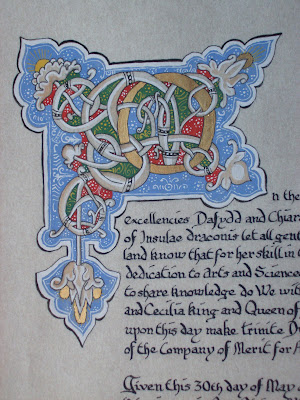 n the
excellencies Dafydd and Chiara
of Insulae draconis let all gent
land know that for her skill in
dedication to Arts and Science
to share knowledge do We wit
and Cecilia king and Queen of
upon this day make trinite D
of the Company of Merit for
Given this 30th day of May